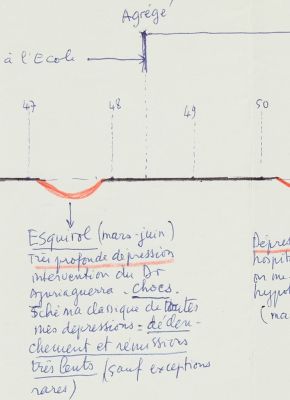 Agrégé
à l'Ecole
47 48 49 50
ESquirol (mars-juin)
très profonde dépression
intervention du Dr
Ajuriaguerra. chocs.
Schéma classique de toutes
mes dépressions = déclen-
chement et rémissions
très lents (sauf exceptions
rares)
Dépres
hospit
on me
hypot
(ma